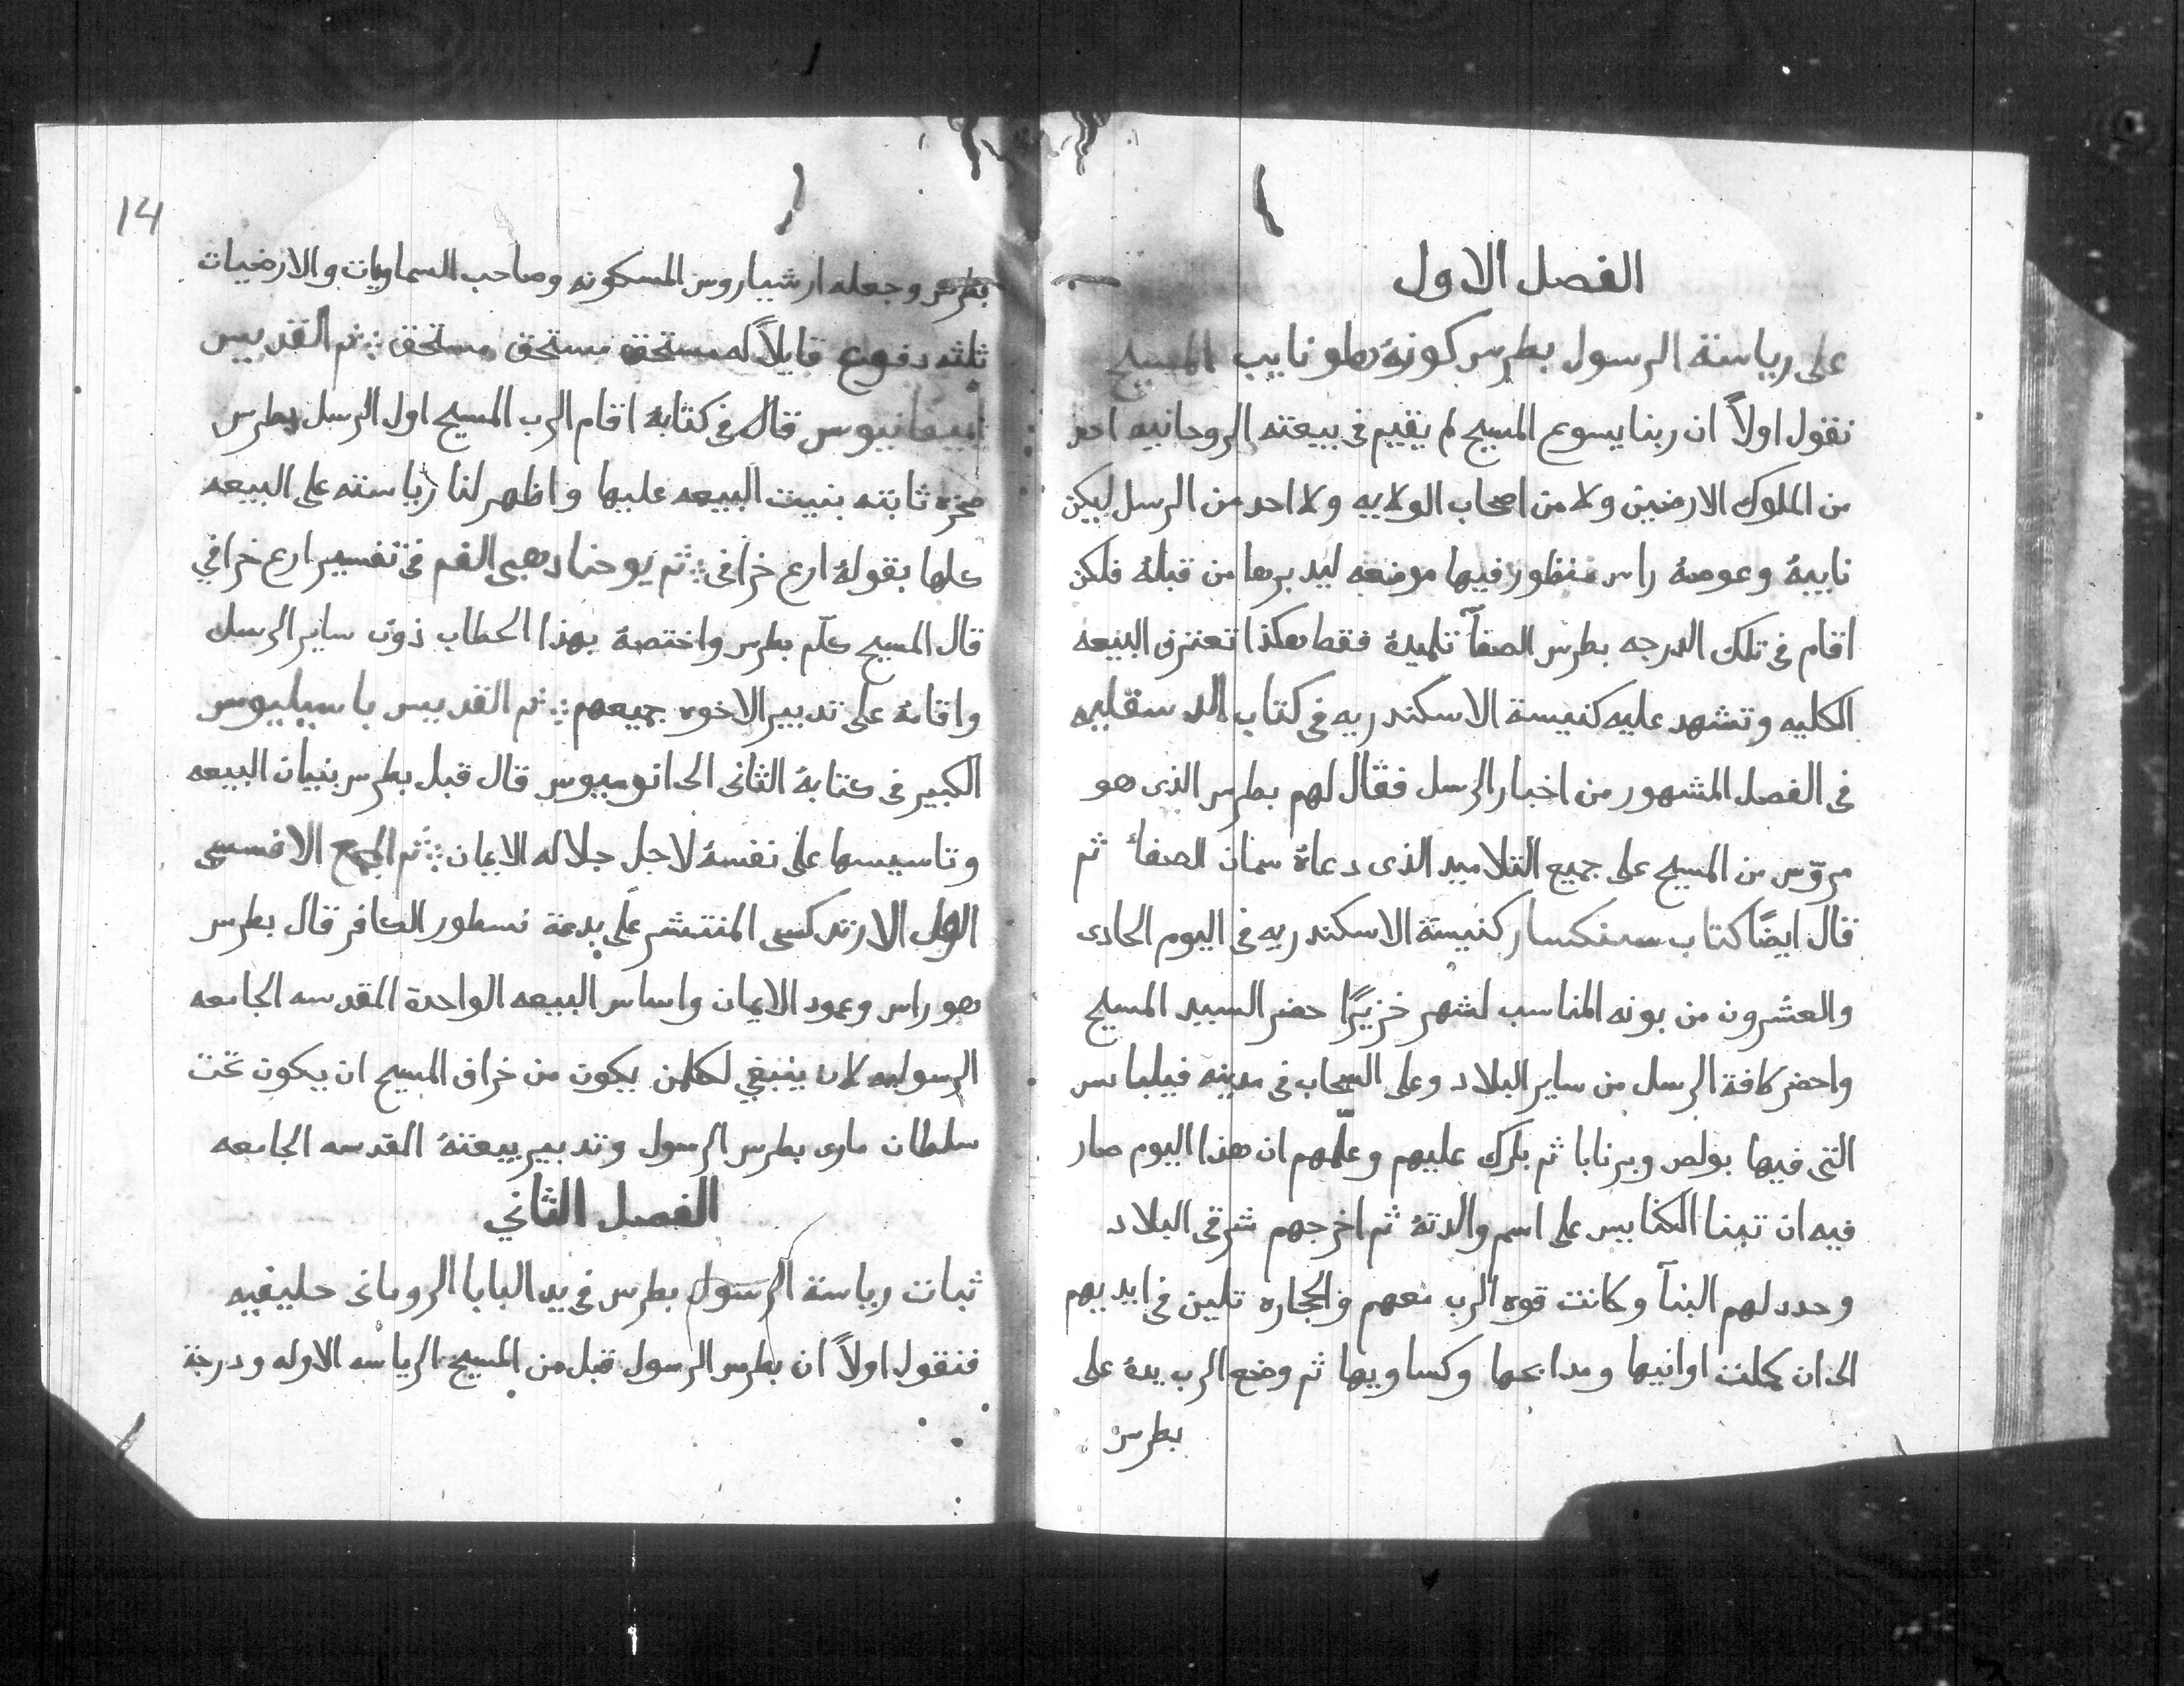 الفصل الاول
على رياسة الرسول بطرس كونهُ هو نايب المسيح
نقول اولاً ان ربنا يسوع المسيح لم يقيم في بيعته الروحانيه احد
من الملوك الارضيين ولا من اصحاب الولايه ولا احد من الرسل ليكن
نايبهُ وعوضهُ راس منظور فيها موضعه ليدبرها من قبلهُ فلكن
اقام في تلك الدرجه بطرس الصفآ تلميدهُ فقط هكذا تعترف البيعه
الكليه وتشهد عليه كنيسة الاسكندريه في كتاب الدسقليه
في الفصل المشهور من اخبار الرسل فقال لهم بطرس الذى هو
مروّس من المسيح على جميع التلاميد الذى دعاهُ سمان الصفا ثم
قال ايضًا كتاب سنكسار كنيسة الاسكندريه في اليوم الحادى
والعشرون من بونه المناسب لشهر خزيرًا حضر السيد المسيح
واحضر كافة الرسل من ساير البلاد وعلى السحاب في مدينه فيلباس
التى فيها بولص وبرنابا ثم بارك عليهم وعلّمهم ان هذا اليوم صار
فيه ان تبنا الكنايس على اسم والدتهُ ثم اخرجهم شرقى البلاد
وحدد لهم البنآ وكانت قوه الرب معهم والحجاره تلين في ايديهم
الى ان كملت اوانيها ومدابحها وكساويها ثم وضع الرب يدهُ على
بطرس
14
بطرس وجعله ارشياروس المسكونه وصاحب السماويات والارضيات
ثلثه دفوع قايلاً له مستحق مستحق مستحق ثم القديس
ابيفانيوس قال في كتابهُ اقام الرب المسيح اول الرسل بطرس
صخره ثابته بنيت البيعه عليها واظهر لنا رياسته على البيعه
كلها بقولهُ ارع خرافي ثم يوحنا دهبى الفم في تفسير ارع خرافي
قال المسيح كلّم بطرس واختصهُ بهذا الخطاب ذون ساير الرسل
واقامهُ على تدبير الاخوه جميعهم ثم القديس باسيليوس
الكبير في كتابهُ الثانى الى انوميوس قال قبل بطرس بنيان البيعه
وتاسيسها على نفسهُ لاجل جلاله الايمان ثم المجمع الافسسى
الاول الارتدكسى المنتشر على بدعة نسطور الكافر قال بطرس
هو راس وعمود الايمان واساس البيعه الواحدة المقدسه الجامعه
الرسوليه لان ينبغي لكلمن يكون من خراف المسيح ان يكون تحت
سلطان مارى بطرس الرسول وتدبير بيعتهُ القدسه الجامعه
الفصل الثاني
ثبات رياسة الرسول بطرس في يد البابا الرومانى خليفيه
فنقول اولاً ان بطرس الرسول قبل من المسيح الرياسه الاوله ودرجة